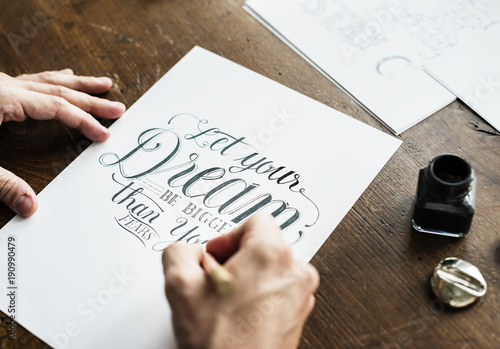 Let your
Dream
BE BIGGE
than Yo
FEARS
Adobe Stock | #190990479